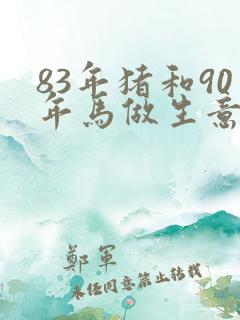 83年猪和90
年馬做生意
鄭軍
未任同意禁止转载